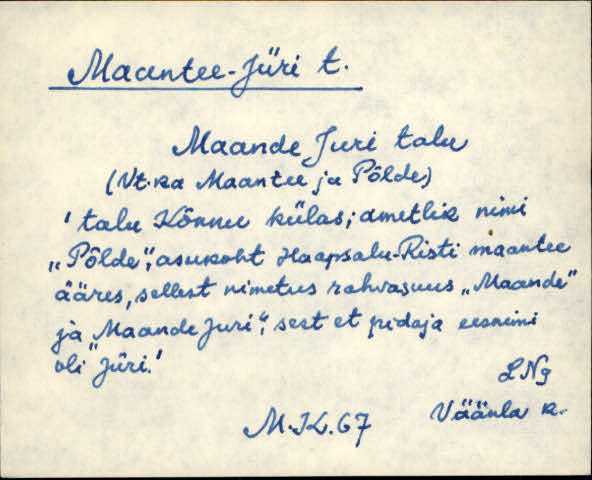 Maantee-Jüri t.
Maande Juri talu
(Vt. ka Maantee ja Põlde)
' talu Kõnnu külas; ametlik nimi
„Põlde”, asukoht Haapsalu-Risti maantee
ääres, sellest nimetus rahvasuus „Maande”
ja „Maande Juri”, sest et pidaja eesnimi
oli Jüri.'
LNg
M.K.67 Väänla k.